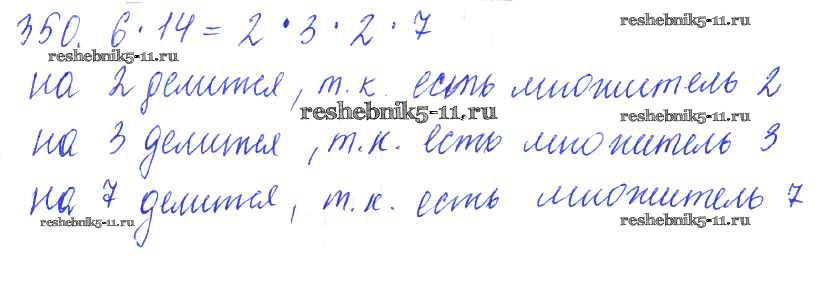 350. 6 · 14 = 2 · 3 · 2 · 7
reshebnik5-11.ru
reshebnik5-11.ru
на 2 делится, т.к. есть множитель 2
reshebnik5-11.ru
reshebnik5-11.ru
на 3 делится, т.к. есть множитель 3
на 7 делится, т.к. есть множитель 7
reshebnik5-11.ru
reshebnik5-11.ru